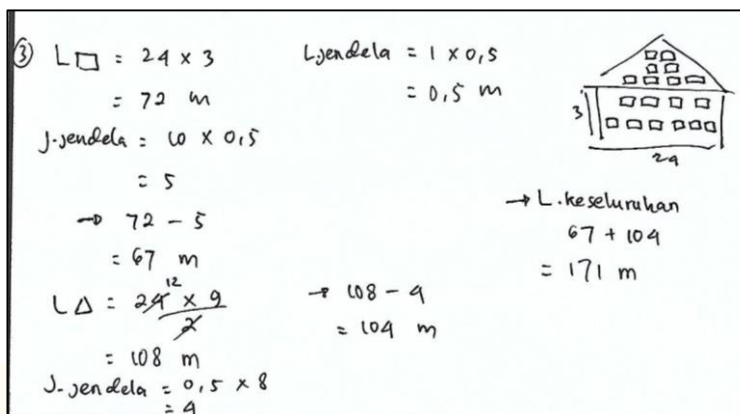 ③ L□ = 24 x 3
= 72 m
J.jendela = 10 x 0,5
= 5
→ 72 - 5
= 67 m
L△ = 24 x 9 / 2
12
= 108 m
J.jendela = 0,5 x 8
= 4
L.jendela = 1 x 0,5
= 0,5 m
→ 108 - 4
= 104 m
3
24
→ L.keseluruhan
67 + 104
= 171 m